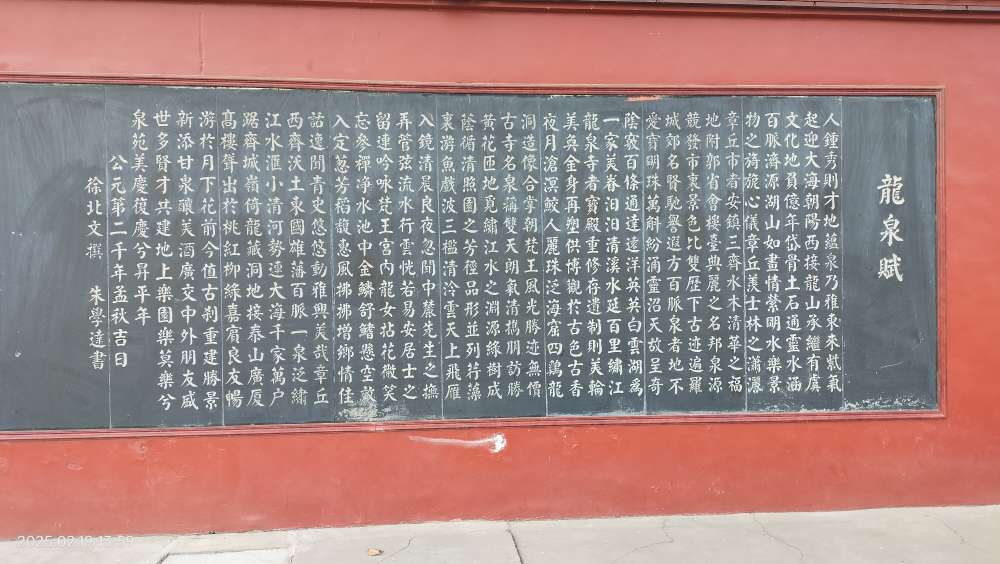 龍泉賦
人鍾秀則才地蘊泉乃雅東來紫氣
起迎大海朝陽西接龍山承繼有虞
文化地質億年岱骨土石通靈水涵
百脈濟源湖山如畫情縈明水樂景
物之旖旎心儀章丘羨士林之瀟灑
章丘市者安鎮三齊水木清華之福
地附郭省會樓臺典麗之名邦泉源
競發市裏景色比雙歷下古迹遍羅
城郊名賢馳譽遐方百脈泉者地不
愛寶明珠萬斛紛涌靈沼天故呈奇
陰竅百條通達遠洋英英白雲湖為
一家美春汨汨清溪水延百里繡江
龍泉寺者寶殿重修存遺制則美輪
美奐金身再塑供博觀於古色古香
夜月滄溟鮫人麗珠泛海窟四鷁龍
洞造像合掌朝梵王風光勝迹無價
古寺名泉稱雙天朗氣清攜朋訪勝
黃花匝地覓繡江水之淵源緣樹成
蔭循清照園之芳徑品形並列荇藻
裏游魚戲波三檻清泠雲天上飛雁
入鏡清晨良夜忽聞中麓先生之撫
弄管弦流水行雲恍若易安居士之
留連吟咏梵王宮內龍女拈花微笑
忘參禪淨水池中金鱗舒鰭懸空欲
入定葱芳稻馥惠風拂拂增鄉情佳
話逸聞青史悠悠動雅興美哉章丘
西齊沃土東國雄藩百脈一泉泛繡
江水滙小清河勢連大海千家萬戶
踞齊城嶺倚龍藏洞地接泰山廣廈
高樓聳出於桃紅柳綠嘉賓良友暢
游於月下花前今值古刹重建勝景
新添甘泉釀美酒廣交中外朋友盛
世多賢才共建地上樂園樂莫樂兮
泉苑美慶復慶兮昇平年
公元第二千年孟秋吉日
徐北文撰 朱學達書
2025-02-19 13:59